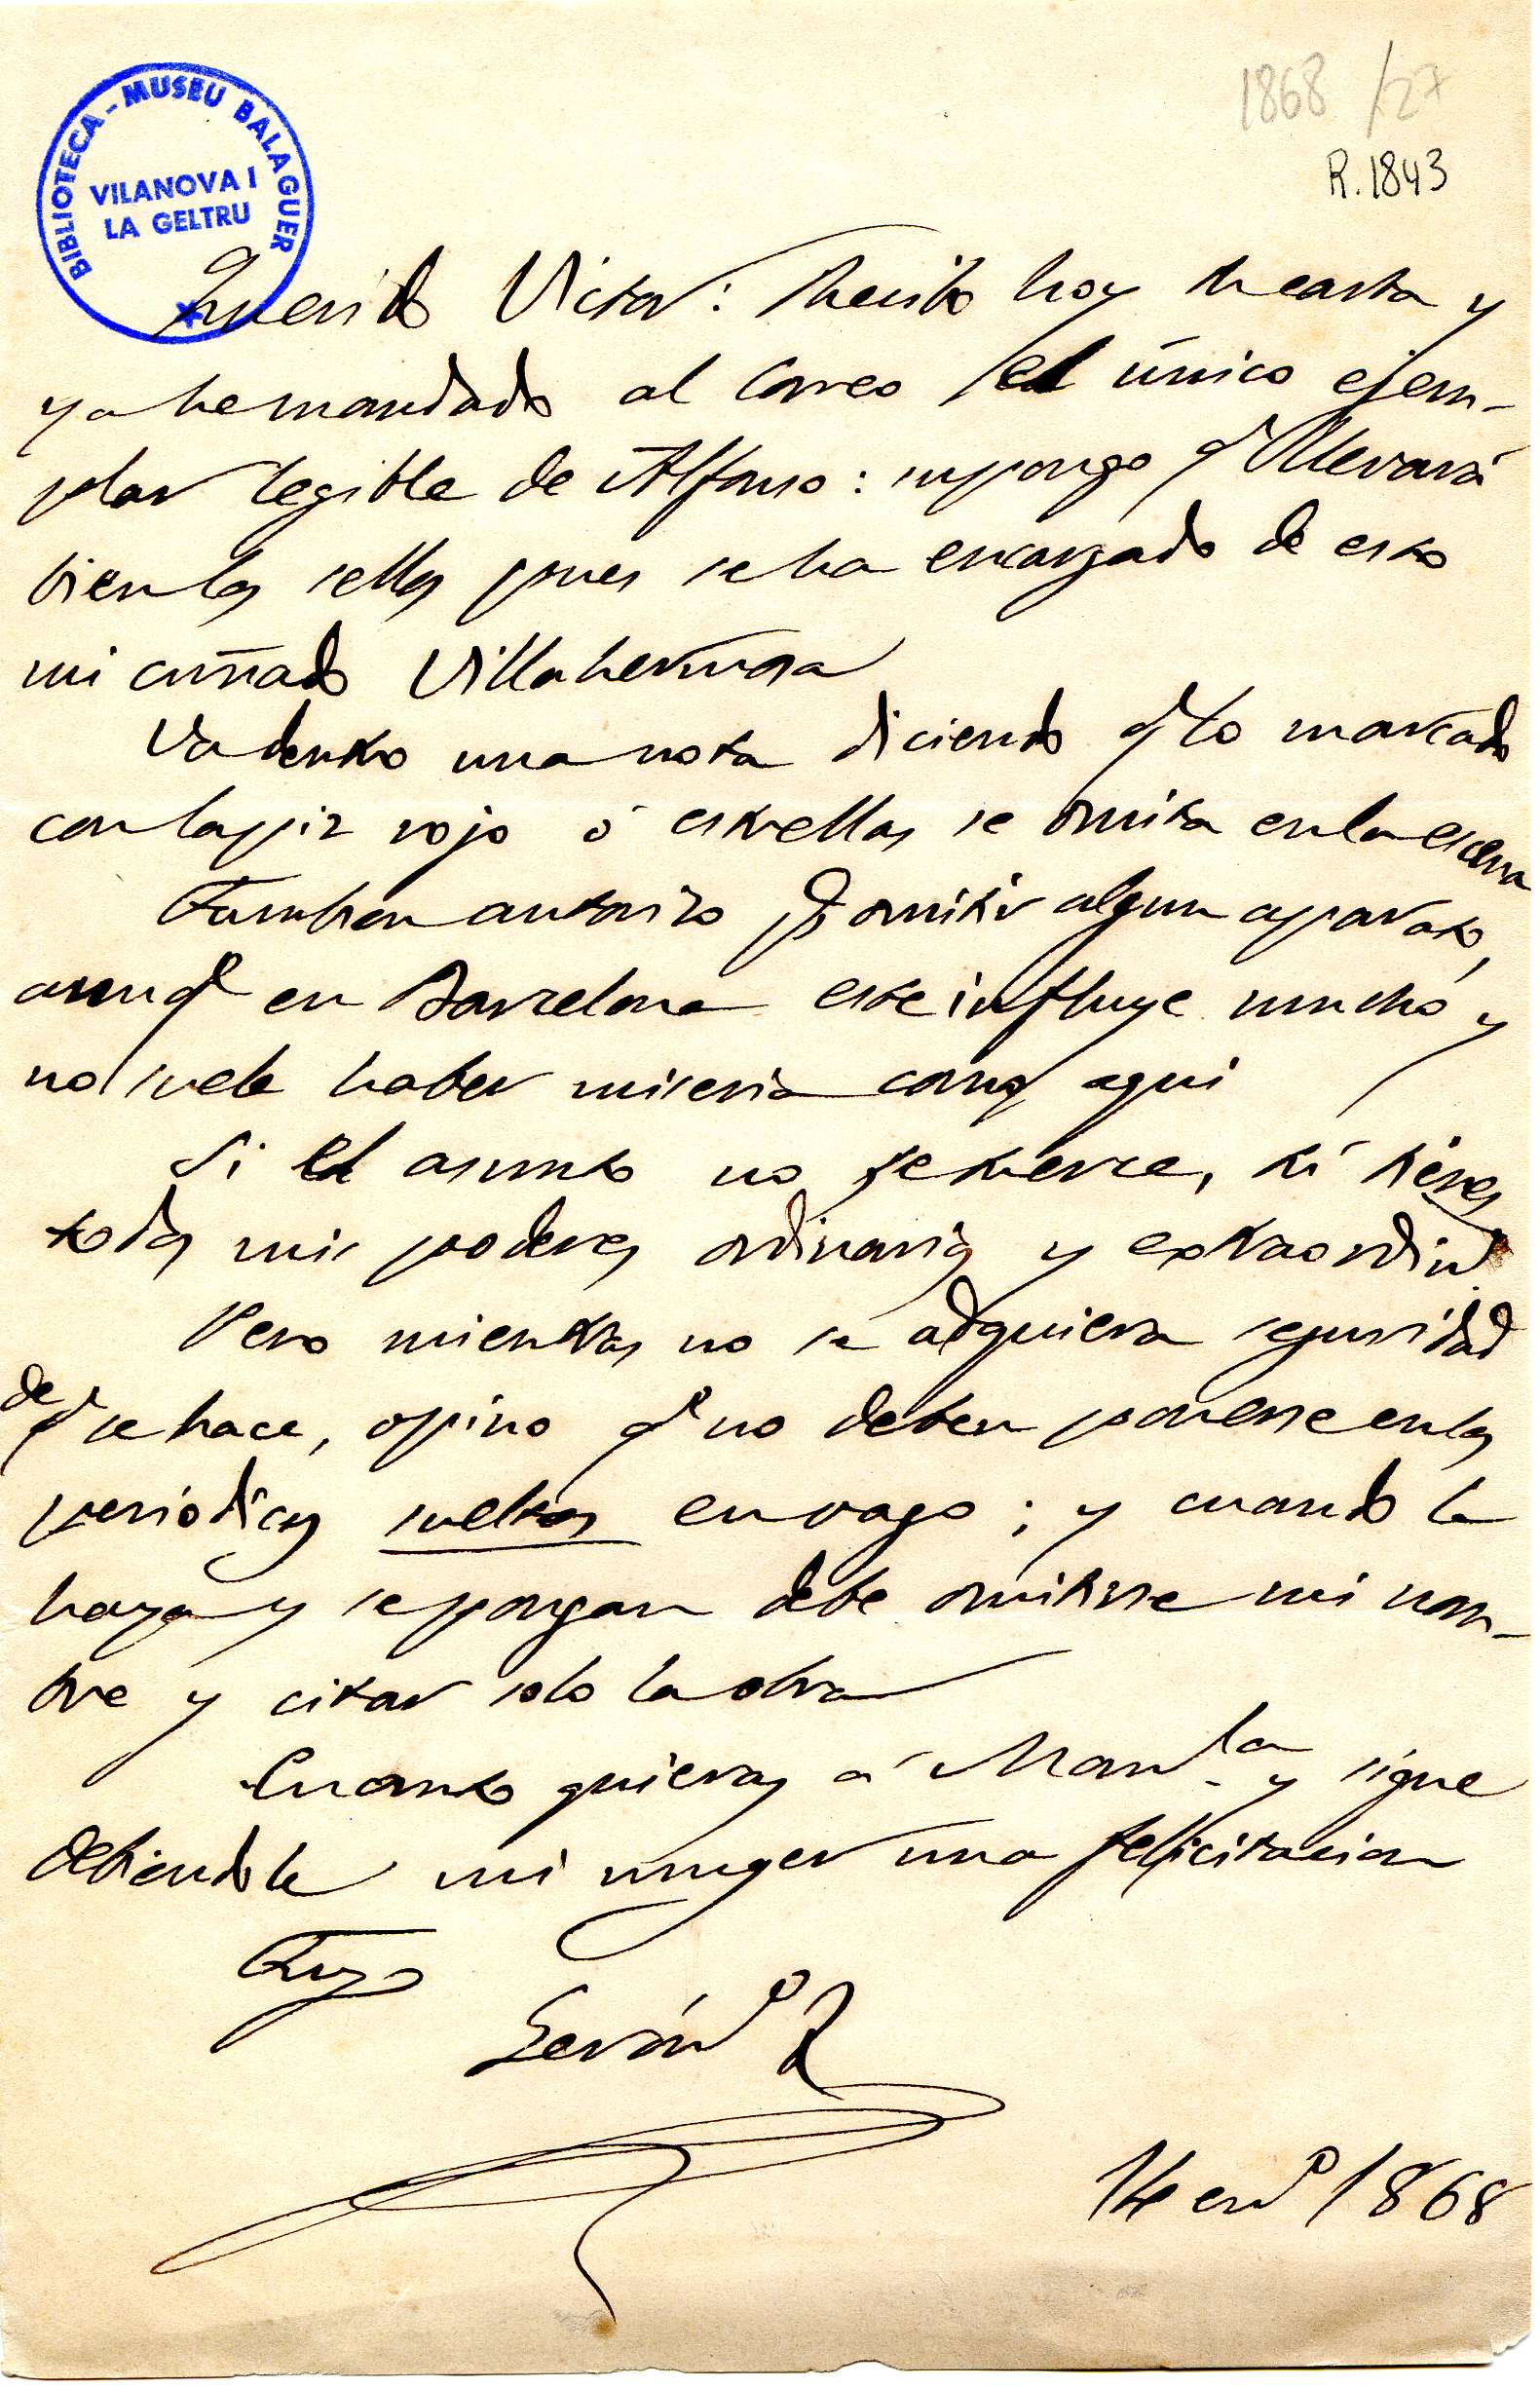 1868 /27
R. 1843
BIBLIOTECA - MUSEU BALAGUER
VILANOVA I
LA GELTRU
Querido Victor: Recibo hoy tu carta y
ya he mandado al Correo el único ejem-
plar legible de Alfonso: supongo q.e llevará
bien los sellos pues se ha encargado de esto
mi cuñado Villahermosa
Va dentro una nota diciendo q.e lo marcado
con lapiz rojo ó estrellas se omita en la escena
Tambien autorizo p.a omitir algun aparato,
aunq.e en Barcelona este influye mucho y
no suele haber miseria como aqui
Si el asunto no se tuerce, tú tienes
todos mis poderes ordinarios y extraordin.s
Pero mientras no se adquiera seguridad
de q.e se hace, opino q.e no deben ponerse en los
periódicos sueltos en vago; y cuando la
haya y se pongan debe omitirse mi nom-
bre y citar solo la obra
Cuanto quieras á Man.la y sigue
debiendole mi muger una felicitacion
Tuyo
14 en.o 1868